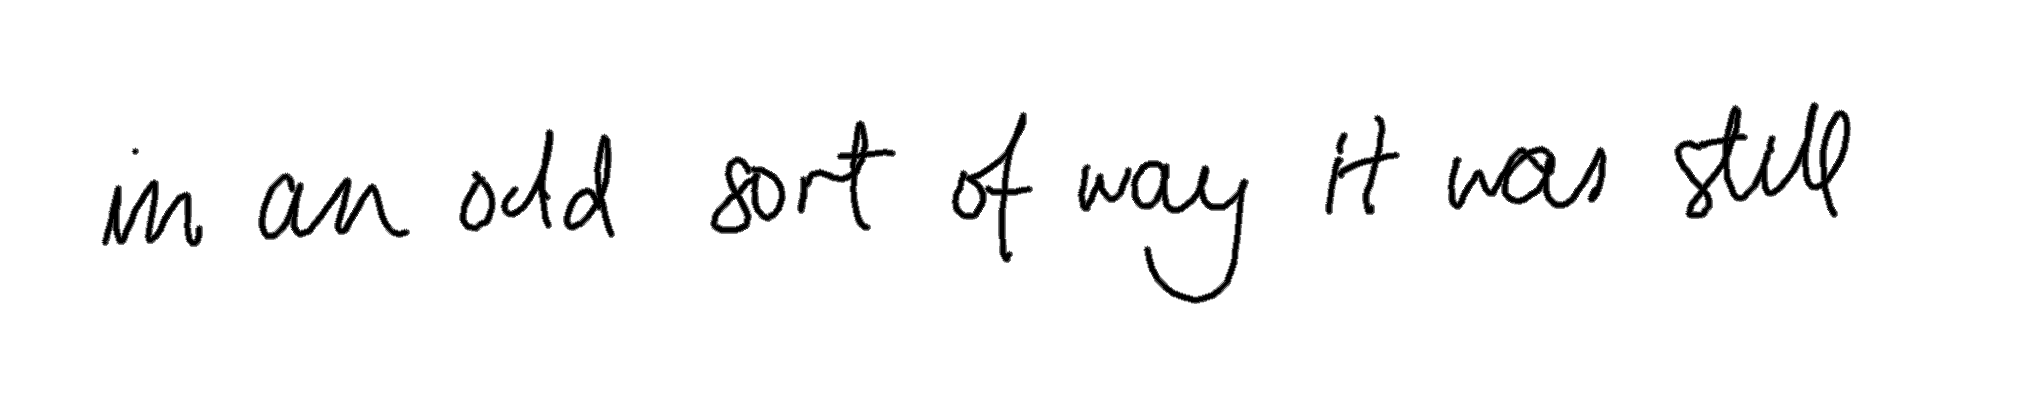 in an odd sort of way it was still